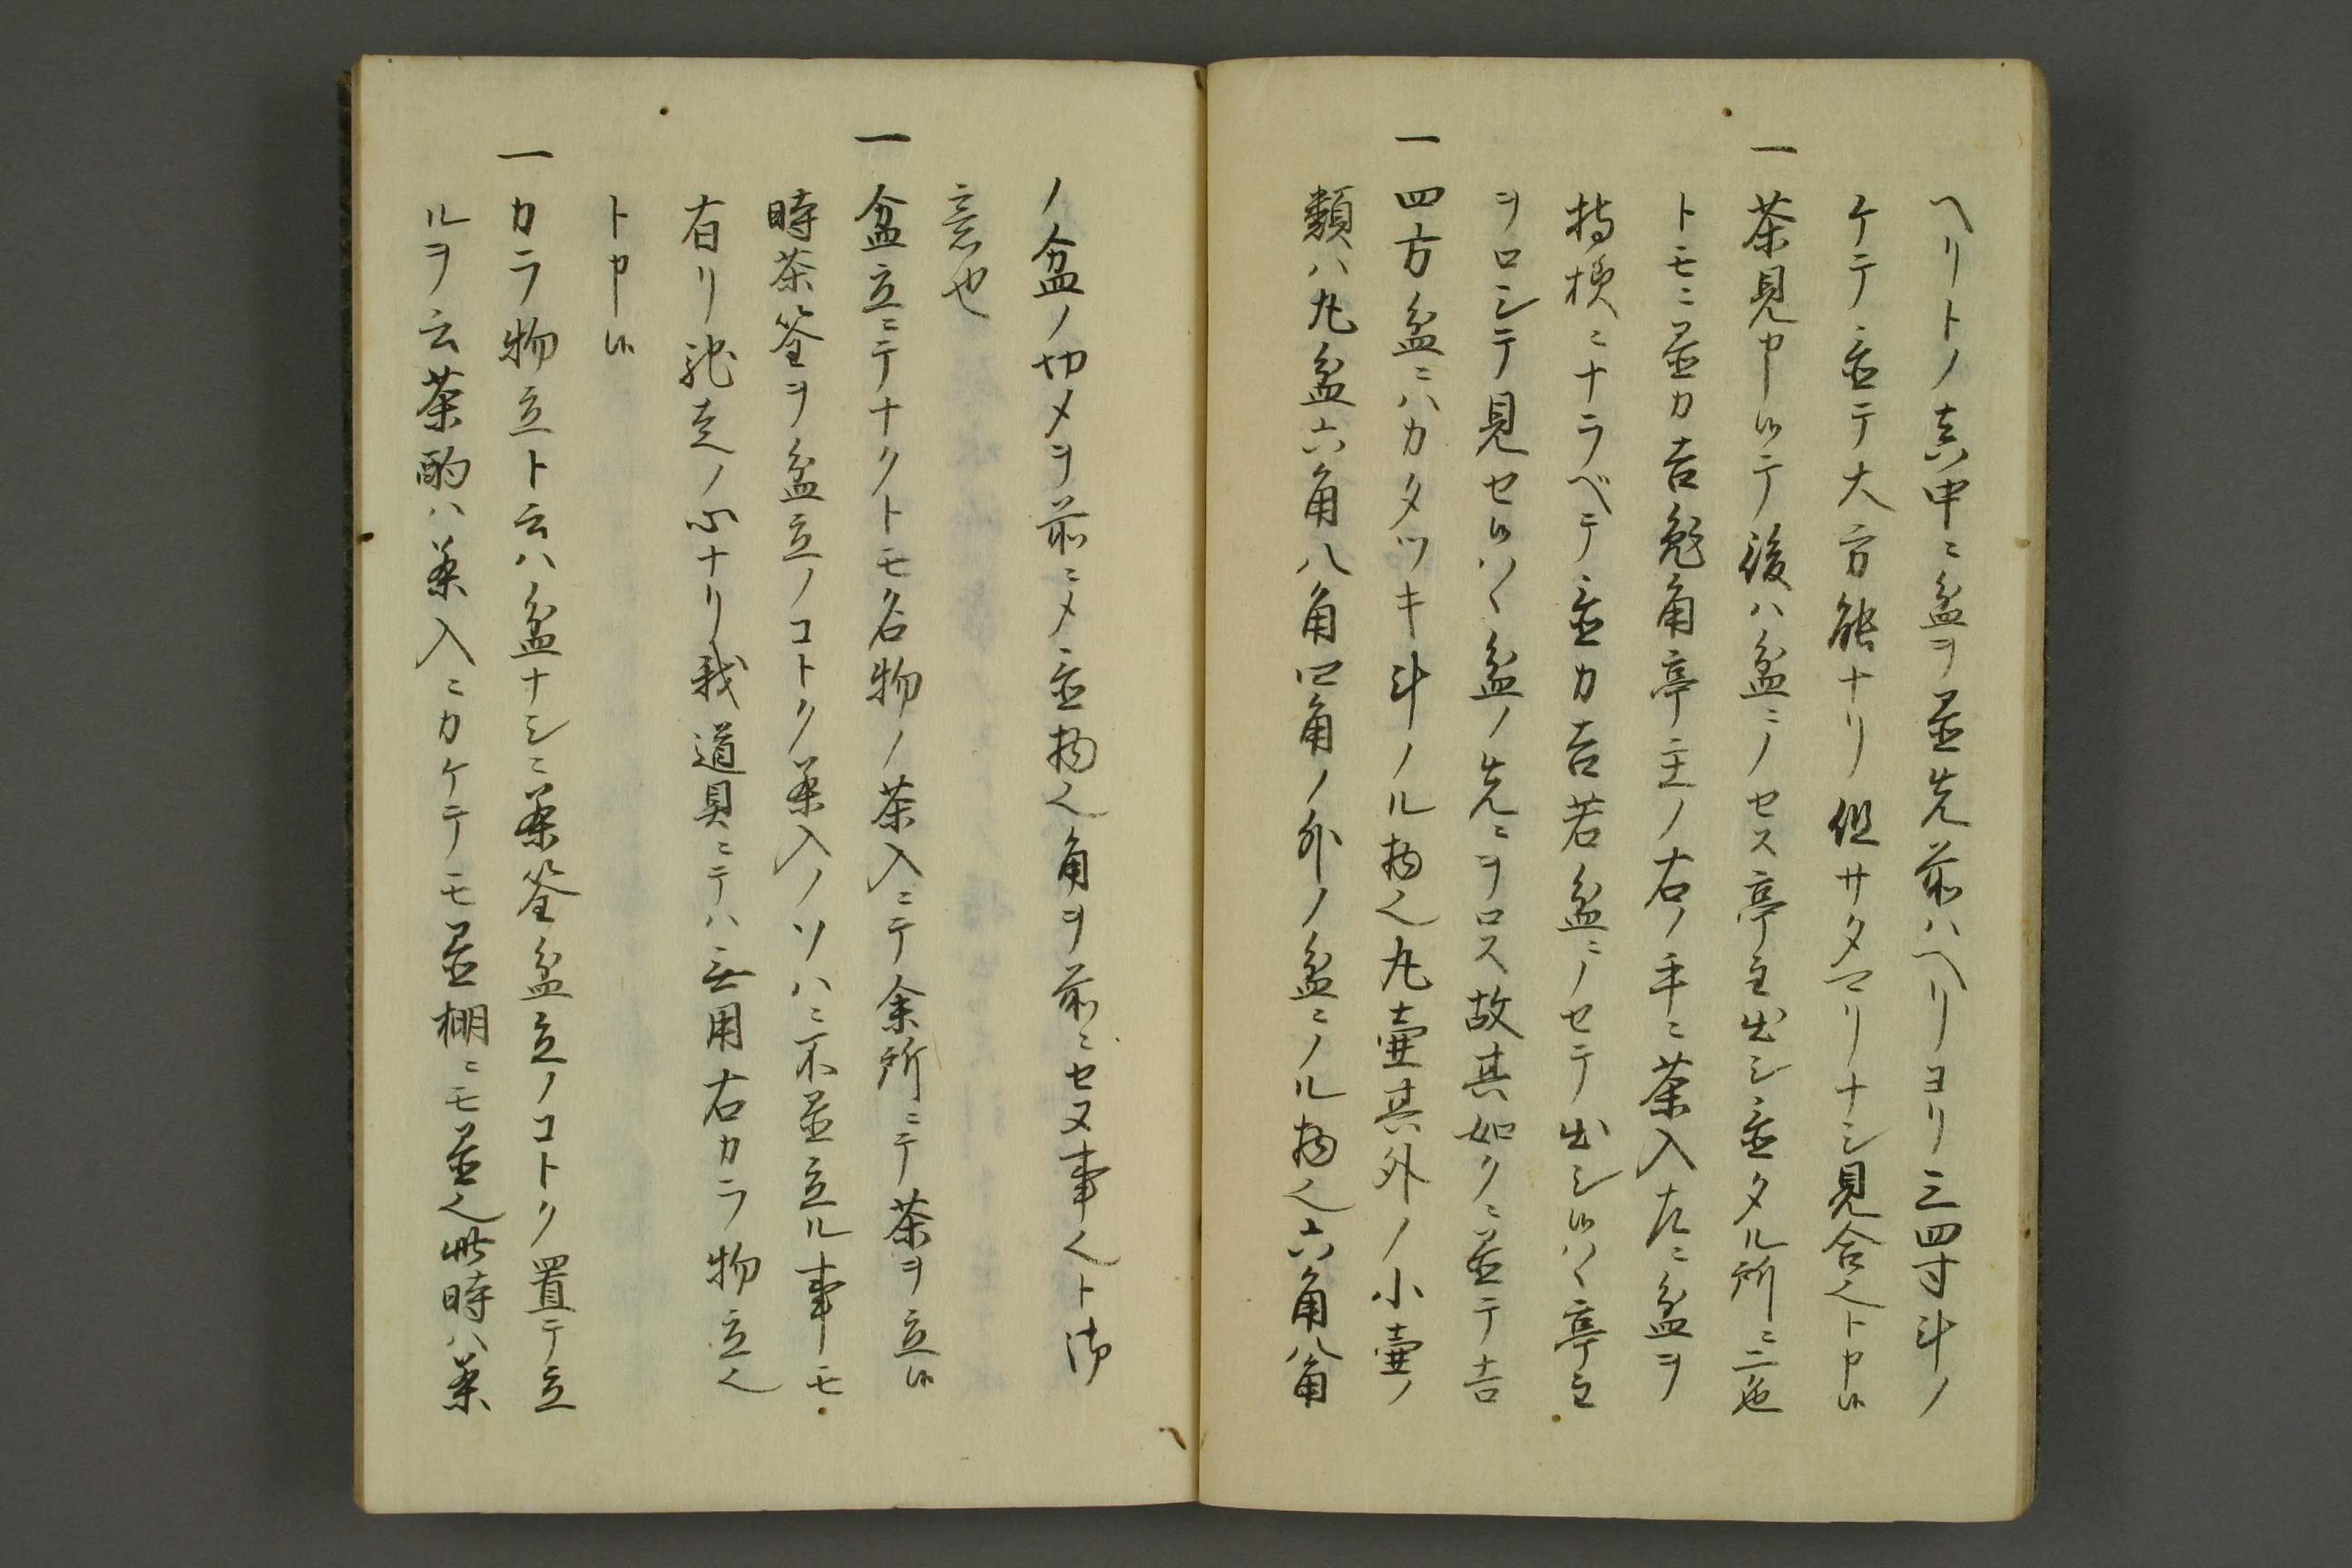 ヘリトノ真中ニ盆ヲ置先前ハヘリヨリ三四寸斗ノ
ケテ置テ大方能ナリ但サタマリナシ見合也ト申候
一茶見申候テ後ハ盆ニノセス亭主出シ置タル所ニ二色
トモニ置カ吉兎角亭主ノ右ノ手ニ茶入左ニ盆ヲ
持様ニナラベテ置カ吉若盆ニノセテ出シ候ハヽ亭主
ヲロシテ見セ候ハヽ盆ノ先ニヲロス故其如クニ置テ吉
一四方盆ニハカタツキ斗ノル物也丸壷其外ノ小壷ノ
類ハ丸盆六角八角四角ノ外ノ盆ニノル物也六角八角
ノ盆ノ切メヲ前ニメ置物也角ヲ前ニセヌ事也ト御
意也
一盆立ニテナクトモ名物ノ茶入ニテ余所ニテ茶ヲ立候
時茶筌ヲ盆立ノコトク茶入ノソハニ不置立ル事モ
有リ馳走ノ心ナリ我道具ニテハ無用右カラ物立也
ト申候
一カラ物立ト云ハ盆ナシニ茶筌盆立ノコトク置テ立
ルヲ云茶酌ハ茶入ニカケテモ置棚ニモ置也此時ハ茶